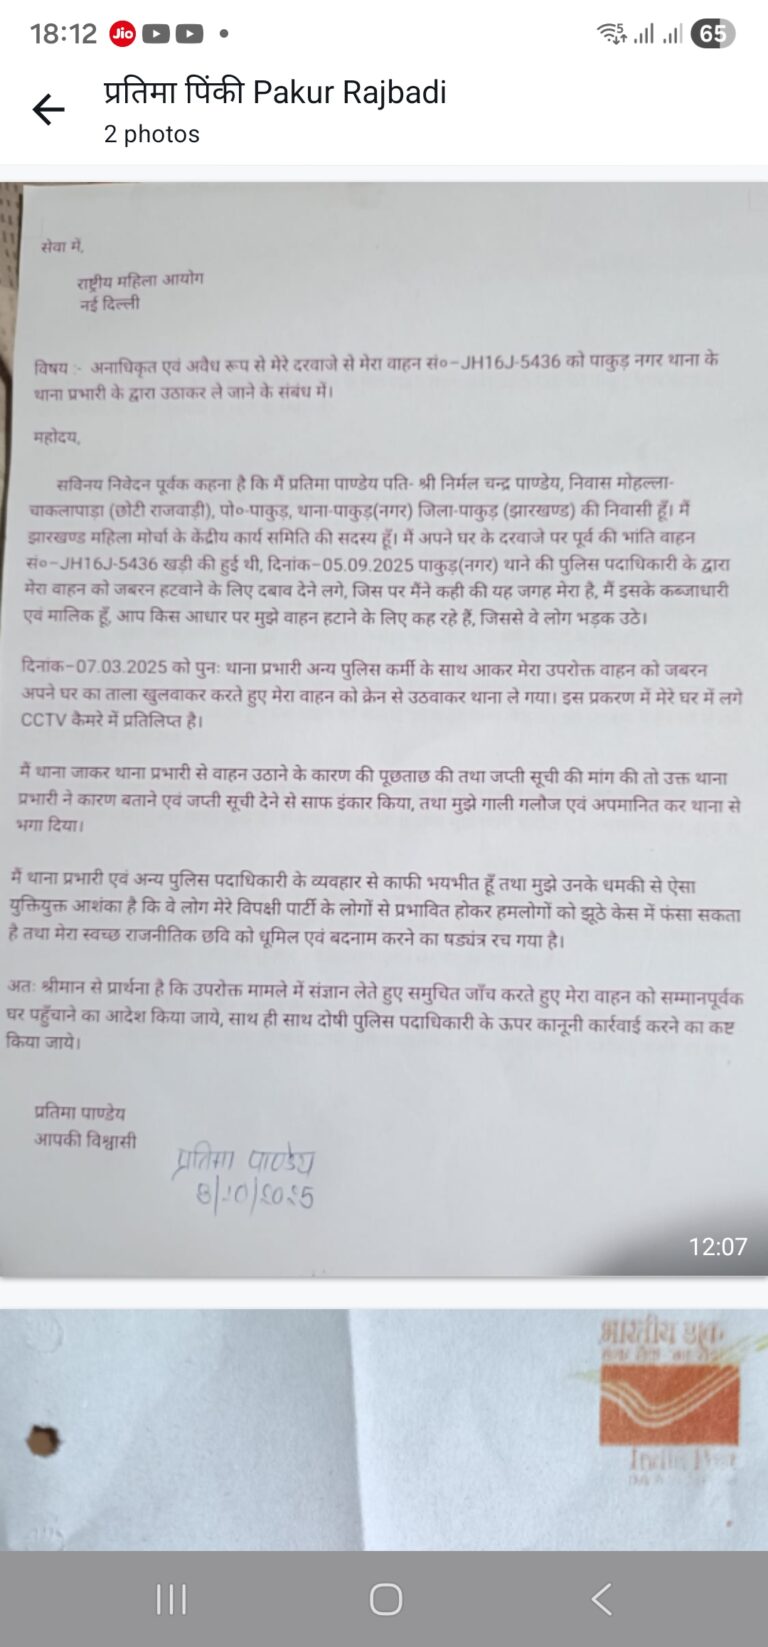 18:12
Jio
65
प्रतिमा पिंकी Pakur Rajbadi
2 photos
सेवा में,
राष्ट्रीय महिला आयोग
नई दिल्ली
विषय :- अनाधिकृत एवं अवैध रूप से मेरे दरवाजे से मेरा वाहन सं०–JH16J-5436 को पाकुड़ नगर थाना के
थाना प्रभारी के द्वारा उठाकर ले जाने के संबंध में।
महोदय,
सविनय निवेदन पूर्वक कहना है कि मैं प्रतिमा पाण्डेय पति- श्री निर्मल चन्द्र पाण्डेय, निवास मोहल्ला-
चाकलापाड़ा (छोटी राजवाड़ी), पो०-पाकुड़, थाना-पाकुड़(नगर) जिला-पाकुड़ (झारखण्ड) की निवासी हूँ। मैं
झारखण्ड महिला मोर्चा के केंद्रीय कार्य समिति की सदस्य हूँ। मैं अपने घर के दरवाजे पर पूर्व की भांति वाहन
सं०–JH16J-5436 खड़ी की हुई थी, दिनांक–05.09.2025 पाकुड़(नगर) थाने की पुलिस पदाधिकारी के द्वारा
मेरा वाहन को जबरन हटवाने के लिए दबाव देने लगे, जिस पर मैंने कही की यह जगह मेरा है, मैं इसके कब्जाधारी
एवं मालिक हूँ, आप किस आधार पर मुझे वाहन हटाने के लिए कह रहे हैं, जिससे वे लोग भड़क उठे।
दिनांक–07.03.2025 को पुनः थाना प्रभारी अन्य पुलिस कर्मी के साथ आकर मेरा उपरोक्त वाहन को जबरन
अपने घर का ताला खुलवाकर करते हुए मेरा वाहन को क्रेन से उठवाकर थाना ले गया। इस प्रकरण में मेरे घर में लगे
CCTV कैमरे में प्रतिलिप्त है।
मैं थाना जाकर थाना प्रभारी से वाहन उठाने के कारण की पूछताछ की तथा जप्ती सूची की मांग की तो उक्त थाना
प्रभारी ने कारण बताने एवं जप्ती सूची देने से साफ इंकार किया, तथा मुझे गाली गलौज एवं अपमानित कर थाना से
भगा दिया।
मैं थाना प्रभारी एवं अन्य पुलिस पदाधिकारी के व्यवहार से काफी भयभीत हूँ तथा मुझे उनके धमकी से ऐसा
युक्तियुक्त आशंका है कि वे लोग मेरे विपक्षी पार्टी के लोगों से प्रभावित होकर हमलोगों को झूठे केस में फंसा सकता
है तथा मेरा स्वच्छ राजनीतिक छवि को धूमिल एवं बदनाम करने का षड्यंत्र रच गया है।
अतः श्रीमान से प्रार्थना है कि उपरोक्त मामले में संज्ञान लेते हुए समुचित जाँच करते हुए मेरा वाहन को सम्मानपूर्वक
घर पहुँचाने का आदेश किया जाये, साथ ही साथ दोषी पुलिस पदाधिकारी के ऊपर कानूनी कार्रवाई करने का कष्ट
किया जाये।
प्रतिमा पाण्डेय
आपकी विश्वासी
प्रतिमा पाण्डेय
8/10/2025
12:07
भारतीय डाक